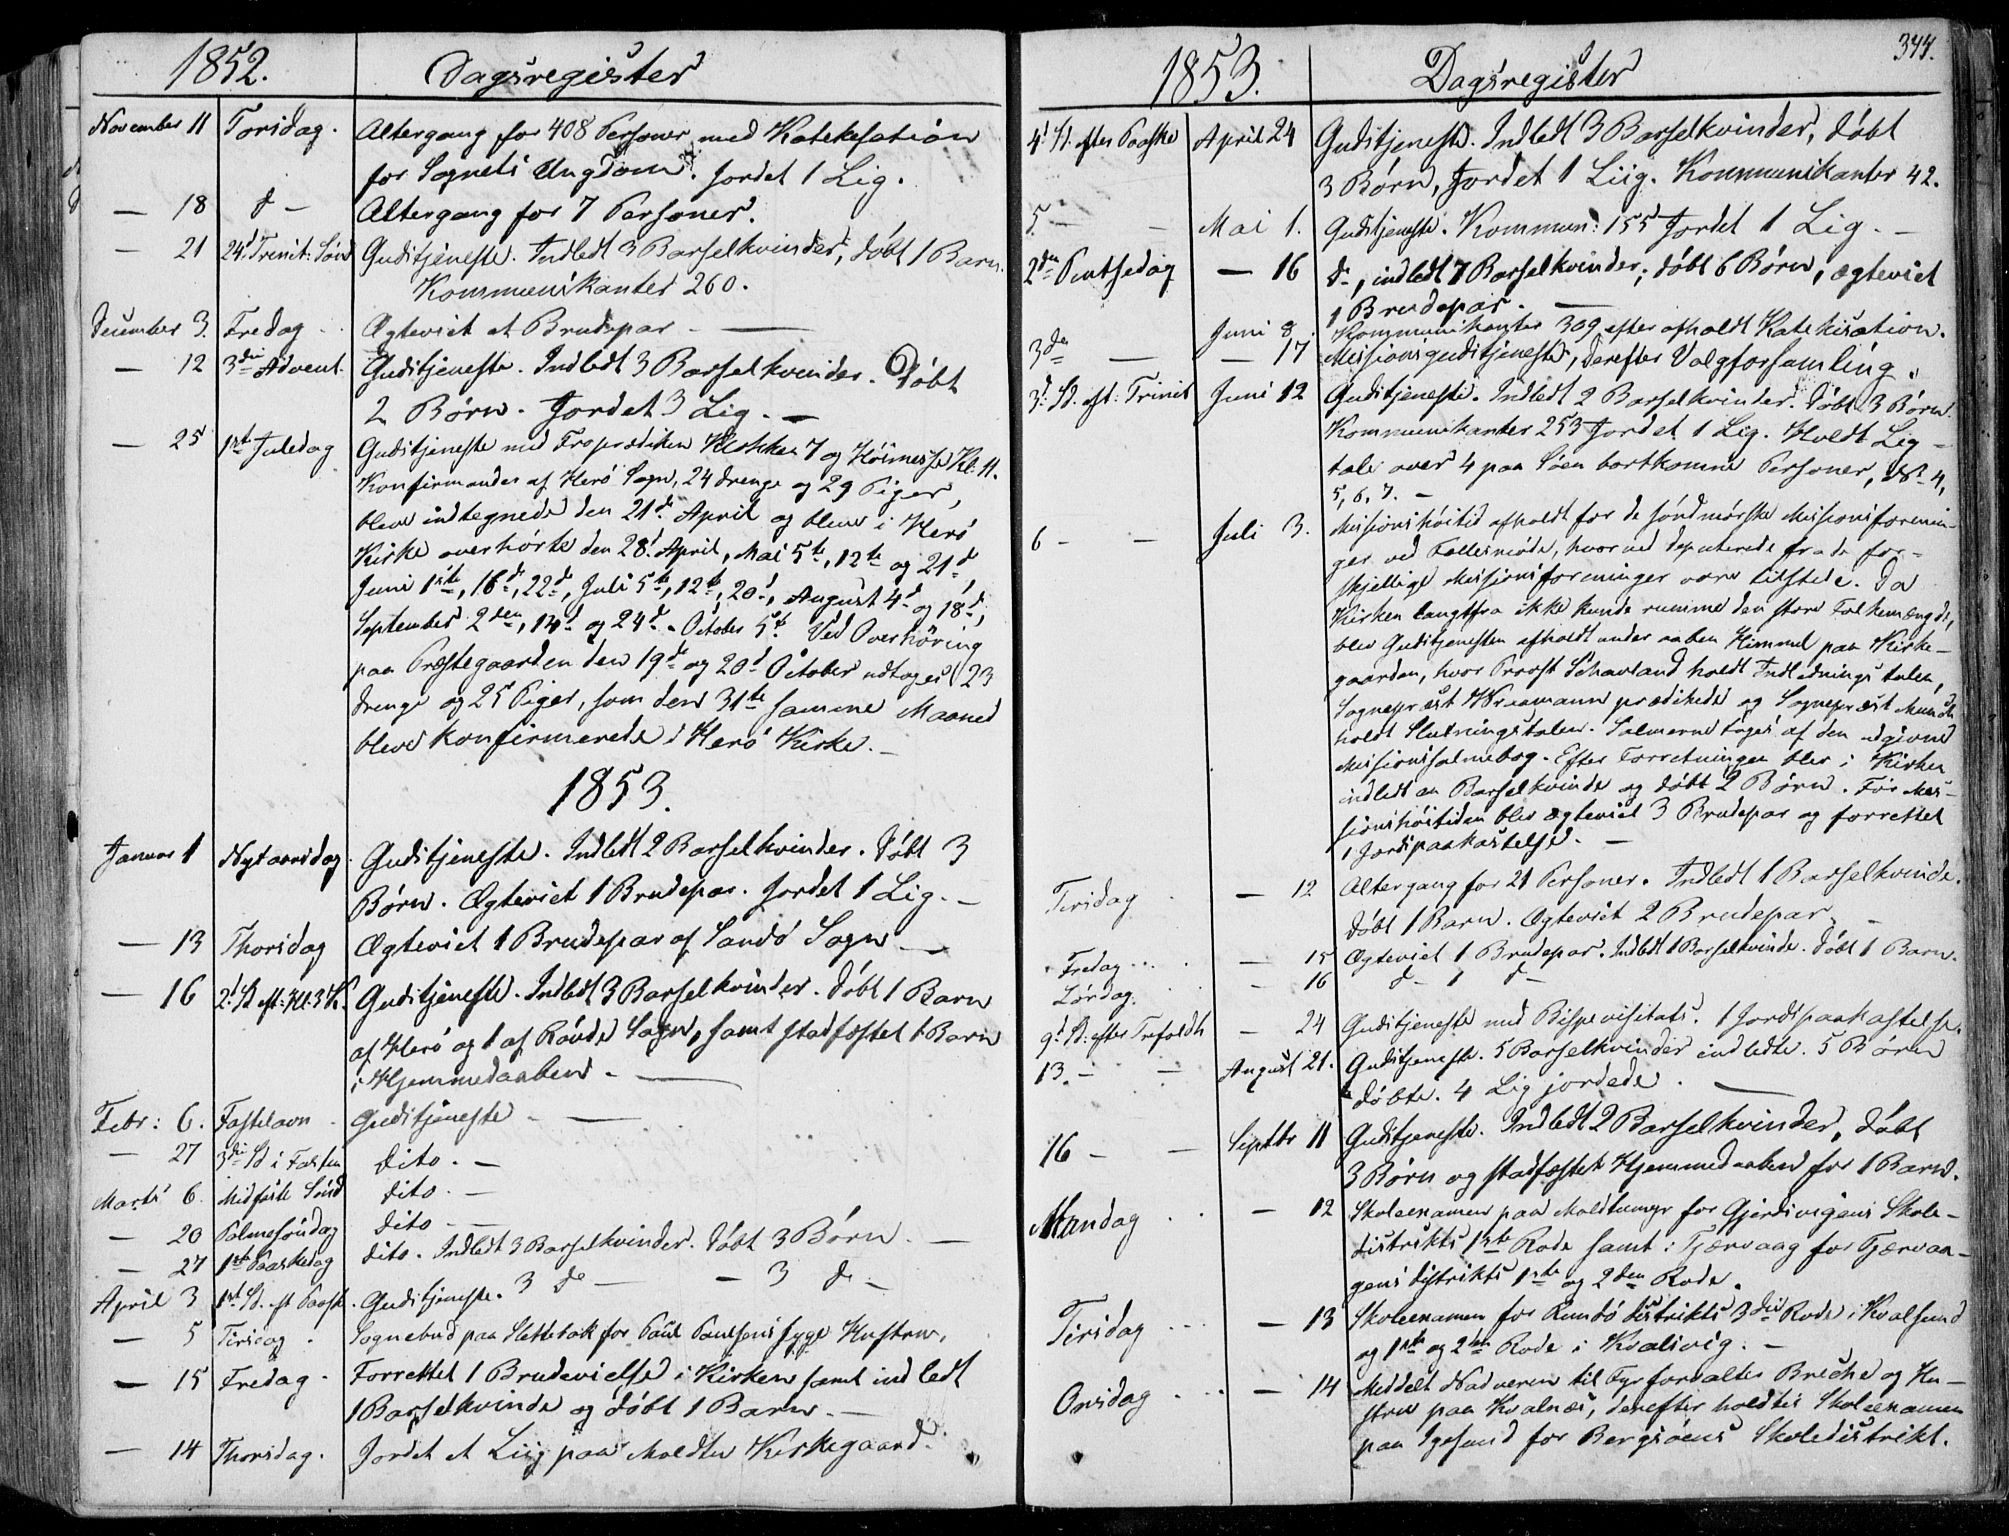 1852. Dagsregister
November 11 Torsdag. Altergang for 408 Personer med Katekesation
for Sognets Ungdom. Jordet 1 Lig.
— 18 d — Altergang for 7 Personer.
— 21 24d Trinit: Sønd Gudstjeneste. Indledt 3 Barselkvinder, døbt 1 Barn.
Kommunikanter 260.
December 3. Fredag Ægteviet et Brudepar —
— 12 3die Advent. Gudstjeneste. Indledt 3 Barselkvinder. Døbt
2 Børn. Jordet 3 Lig. —
— 25 1ste Juledag Gudstjeneste med Froprædiken Klokken 7 og Høimesse Kl. 11.
Konfirmander af Herø Sogn, 24 Drenge og 29 Piger,
bleve indtegnede den 21de April og bleve i Herø
Kirke overhørte den 28d April, Mai 5te, 12te og 21d
Juni 1ste, 16d, 22d, Juli 5te, 12te, 20d, August 4d og 18d,
September 2den, 14d og 24d. October 5te. Ved Overhøring
paa Præstegaarden den 19de og 20d October udtoges 23
Drenge og 25 Piger, som den 31te samme Maaned
bleve konfirmerede i Herø Kirke. —
1853.
Januar 1 Nytaarsdag. Gudstjeneste. Indledt 2 Barselkvinder. Døbt 3
Børn. Ægteviet 1 Brudepar. Jordet 1 Lig. —
— 13 Thorsdag Ægteviet 1 Brudepar af Sandø Sogn —
— 16 2d S eft: Hl. 3 K. Gudstjeneste. Indledt 3 Barselkvinder. Døbt 1 Barn
af Herø og 1 af Røvde Sogn, samt stadfæstet 1 Barn
i Hjemmedaaben. —
Febr: 6. Fastelavn Gudstjeneste —
— 27 3die S i Fasten dito. —
Marts 6. Midfaste Sønd dito. —
— 20 Palmesøndag dito —
— 27 1ste Paaskedag dito. Indledt 3 Barselkvinder. Døbt 3 Børn. —
April 3 1st S. eft Paask. Gudstjeneste. 3 do — — 3 do —
— 5 Tirsdag. Sognebud paa Slettebak for Paul Poulsens syge Hustru.
— 15 Fredag. Forrettet 1 Brudevielse i Kirken samt indledt
1 Barselkvinde og døbt 1 Barn. —
— 14 Thorsdag. Jordet et Liig paa Moldtu Kirkegaard.
344.
1853. Dagsregister
4d S. efter Paaske April 24 Gudstjeneste. Indledt 3 Barselkvinder, døbt
3 Børn, Jordet 1 Liig. Kommunikanter 42.
5. — — Mai 1. Gudstjeneste. Kommun: 155 Jordet 1 Lig. —
2den Pintsedag — 16 do, indledt 7 Barselkvinder, døbt 6 Børn, ægteviet
1 Brudepar. —
Juni 8. Kommunikanter 309 efter afholdt Katekisation.
3de — — 17 Missionsgudstjeneste, derefter Valgforsamling.
3d S. eft: Trinit Juni 12 Gudstjeneste. Indledt 2 Barselkvinder. Døbt 3 Børn.
Kommunikanter 253 Jordet 1 Lig. Holdt Lig-
tale over 4 paa Søen bortkomne Personer, No 4,
5, 6, 7. —
6 — — Juli 3. Missionshøitid afholdt for de søndmørske Missionsforenin-
ger ved Fællesmøde, hvorved deputerede fra de for-
skjellige Missionsforeninger vare tilstede. Da
Kirken langtfra ikke kunde rumme den store Folkemængde,
blev Gudstjenesten afholdt under aaben Himmel paa Kirke-
gaarden, hvor Provst Schavland holdt Indledningstalen,
Sognepræst Wraamann prædikede og Sognepræst Munch
holdt Slutningstalen. Salmerne toges af den udgivne
Missionssalmebog. Efter Forretningen blev i Kirken
indledt en Barselkvinde og døbt 2 Børn. Før Mis-
sionshøitiden blev ægteviet 3 Brudepar og forrettet
1 Jordspaakastelse. —
Tirsdag — 12 Altergang for 21 Personer. Indledt 1 Barselkvinde.
Døbt 1 Barn. Ægteviet 2 Brudepar. —
Fredag — 15 Ægteviet 1 Brudepar. Indledt 1 Barselkvinde. Døbt 1 Barn.
Lørdag. — 16 d — 1 d —
9d S. efter Trefoldh — 24 Gudstjeneste med Bispevisitats. 1 Jordspaakastelse.
13. — — August 21. Gudstjeneste. 5 Barselkvinder indledte. 5 Børn
døbte. 4 Lig jordede. —
16 — — Septbr 11 Gudstjeneste. Indledt 2 Barselkvinder, døbt
3 Børn og stadfæstet Hjemmedaaben for 1 Barn.
Mandag — 12 Skoleexamen paa Moldtumyr for Gjerdsvigens Skole-
distrikts 1ste Rode samt i Tjærvaag for Tjærvaa-
gens Distrikts 1ste og 2den Rode.
Tirsdag — 13 Skoleexamen for Rundø Distrikts 3die Rode i Kvalsund
og 1ste og 2den Rode i Kvalsvig. —
Onsdag — 14 Meddelt Nadveren til Fyrforvalter Breche og Hu-
stru paa Kvalnes, derefter holdtes Skoleexamen
paa Igesund for Bergsøens Skoledistrikt.